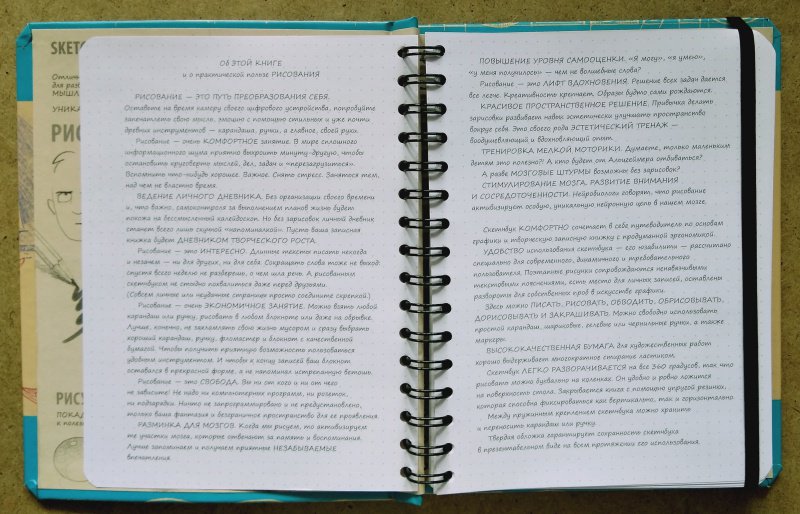 SKETC
Отличн
для раз
МЫШЛ
УНИКА
РИ
РИСУ
ПОКАД
к полез
Об ЭТОЙ КНИГЕ
и о практической пользе РИСОВАНИЯ
РИСОВАНИЕ — ЭТО ПУТЬ ПРЕОБРАЗОВАНИЯ СЕБЯ.
Оставьте на время камеру своего цифрового устройства, попробуйте
запечатлеть свою мысль, эмоцию с помощью стильных и уже почти
древних инструментов — карандаша, ручки, а главное, своей руки.
Рисование — очень КОМФОРТНОЕ занятие. В мире сплошного
информационного шума приятно выкроить минутку-другую, чтобы
остановить круговерть мыслей, дел, задач и «перезагрузиться».
Вспомнить что-нибудь хорошее. Важное. Снять стресс. Заняться тем,
над чем не властно время.
ВЕДЕНИЕ ЛИЧНОГО ДНЕВНИКА. Без организации своего времени
и, что важно, самоконтроля за выполнением планов жизнь будет
похожа на бессмысленный калейдоскоп. Но без зарисовок личный дневник
станет всего лишь скучной «напоминалкой». Пусть ваша записная
книжка будет ДНЕВНИКОМ ТВОРЧЕСКОГО РОСТА.
Рисование — это ИНТЕРЕСНО. Длинные тексты писать некогда
и незачем — ни для других, ни для себя. Сокращать слова тоже не выход:
спустя всего неделю не разберешь, о чем шла речь. А рисованным
скетчбуком не стыдно похвалиться даже перед друзьями.
(Совсем личные или неудачные странички просто соедините скрепкой.)
Рисование — очень ЭКОНОМИЧНОЕ ЗАНЯТИЕ. Можно взять любой
карандаш или ручку, рисовать в любом блокноте или даже на обрывке.
Лучше, конечно, не захламлять свою жизнь мусором и сразу выбрать
хороший карандаш, ручку, фломастер и блокнот с качественной
бумагой. Чтобы получить приятную возможность пользоваться
удобным инструментом. И чтобы к концу записей ваш блокнот
оставался в прекрасной форме, а не напоминал истрепанную ветошь.
Рисование — это СВОБОДА. Вы ни от кого и ни от чего
не зависите! Не надо ни компьютерных программ, ни розеток,
ни подзарядки. Ничто не запрограммировано и не предустановлено,
только ваша фантазия и безграничное пространство для ее проявления.
РАЗМИНКА ДЛЯ МОЗГОВ. Когда мы рисуем, то активизируем
те участки мозга, которые отвечают за память и воспоминания.
Лучше запоминаем и получаем приятные НЕЗАБЫВАЕМЫЕ
впечатления.
ПОВЫШЕНИЕ УРОВНЯ САМООЦЕНКИ. «Я могу», «я умею»,
«у меня получилось» — чем не волшебные слова?
Рисование — это ЛИФТ ВДОХНОВЕНИЯ. Решение всех задач дается
все легче. Креативность крепчает. Образы будто сами рождаются.
КРАСИВОЕ ПРОСТРАНСТВЕННОЕ РЕШЕНИЕ. Привычка делать
зарисовки развивает навык эстетически улучшать пространство
вокруг себя. Это своего рода ЭСТЕТИЧЕСКИЙ ТРЕНАЖ —
воодушевляющий и вдохновляющий опыт.
ТРЕНИРОВКА МЕЛКОЙ МОТОРИКИ. Думаете, только маленьким
детям это полезно?! А кто будет от Альцгеймера отбиваться?
А разве МОЗГОВЫЕ ШТУРМЫ возможны без зарисовок?
СТИМУЛИРОВАНИЕ МОЗГА. РАЗВИТИЕ ВНИМАНИЯ
И СОСРЕДОТОЧЕННОСТИ. Нейробиологи говорят, что рисование
активизирует особую, уникальную нейронную цепь в нашем мозге.
Скетчбук КОМФОРТНО сочетает в себе путеводитель по основам
графики и творческую записную книжку с продуманной эргономикой.
УДОБСТВО использования скетчбука — его юзабилити — рассчитано
специально для современного, динамичного и требовательного
пользователя. Поэтапные рисунки сопровождаются ненавязчивыми
текстовыми пояснениями, есть место для личных записей, оставлены
развороты для собственных проб в искусстве графики.
Здесь можно ПИСАТЬ, РИСОВАТЬ, ОБВОДИТЬ, ОБРИСОВЫВАТЬ,
ДОРИСОВЫВАТЬ И ЗАКРАШИВАТЬ. Можно свободно использовать
простой карандаш, шариковые, гелевые или чернильные ручки, а также
маркеры.
ВЫСОКОКАЧЕСТВЕННАЯ БУМАГА для художественных работ
хорошо выдерживает многократное стирание ластиком.
Скетчбук ЛЕГКО РАЗВОРАЧИВАЕТСЯ на все 360 градусов, так что
рисовать можно буквально на коленках. Он удобно и ровно ложится
на поверхность стола. Закрывается книга с помощью упругой резинки,
которая способна фиксироваться как вертикально, так и горизонтально.
Между пружинным креплением скетчбука можно хранить
и переносить карандаш или ручку.
Твердая обложка гарантирует сохранность скетчбука
в презентабельном виде на всем протяжении его использования.